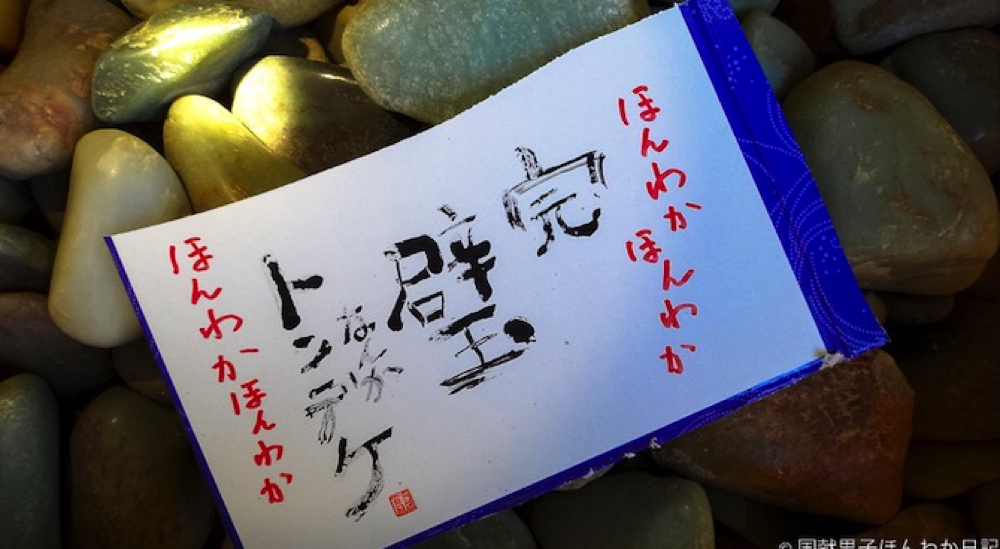 ほんわかほんわか
完璧
なんか
トンデケ
ほんわかほんわか
© 国献男子ほんわか日記